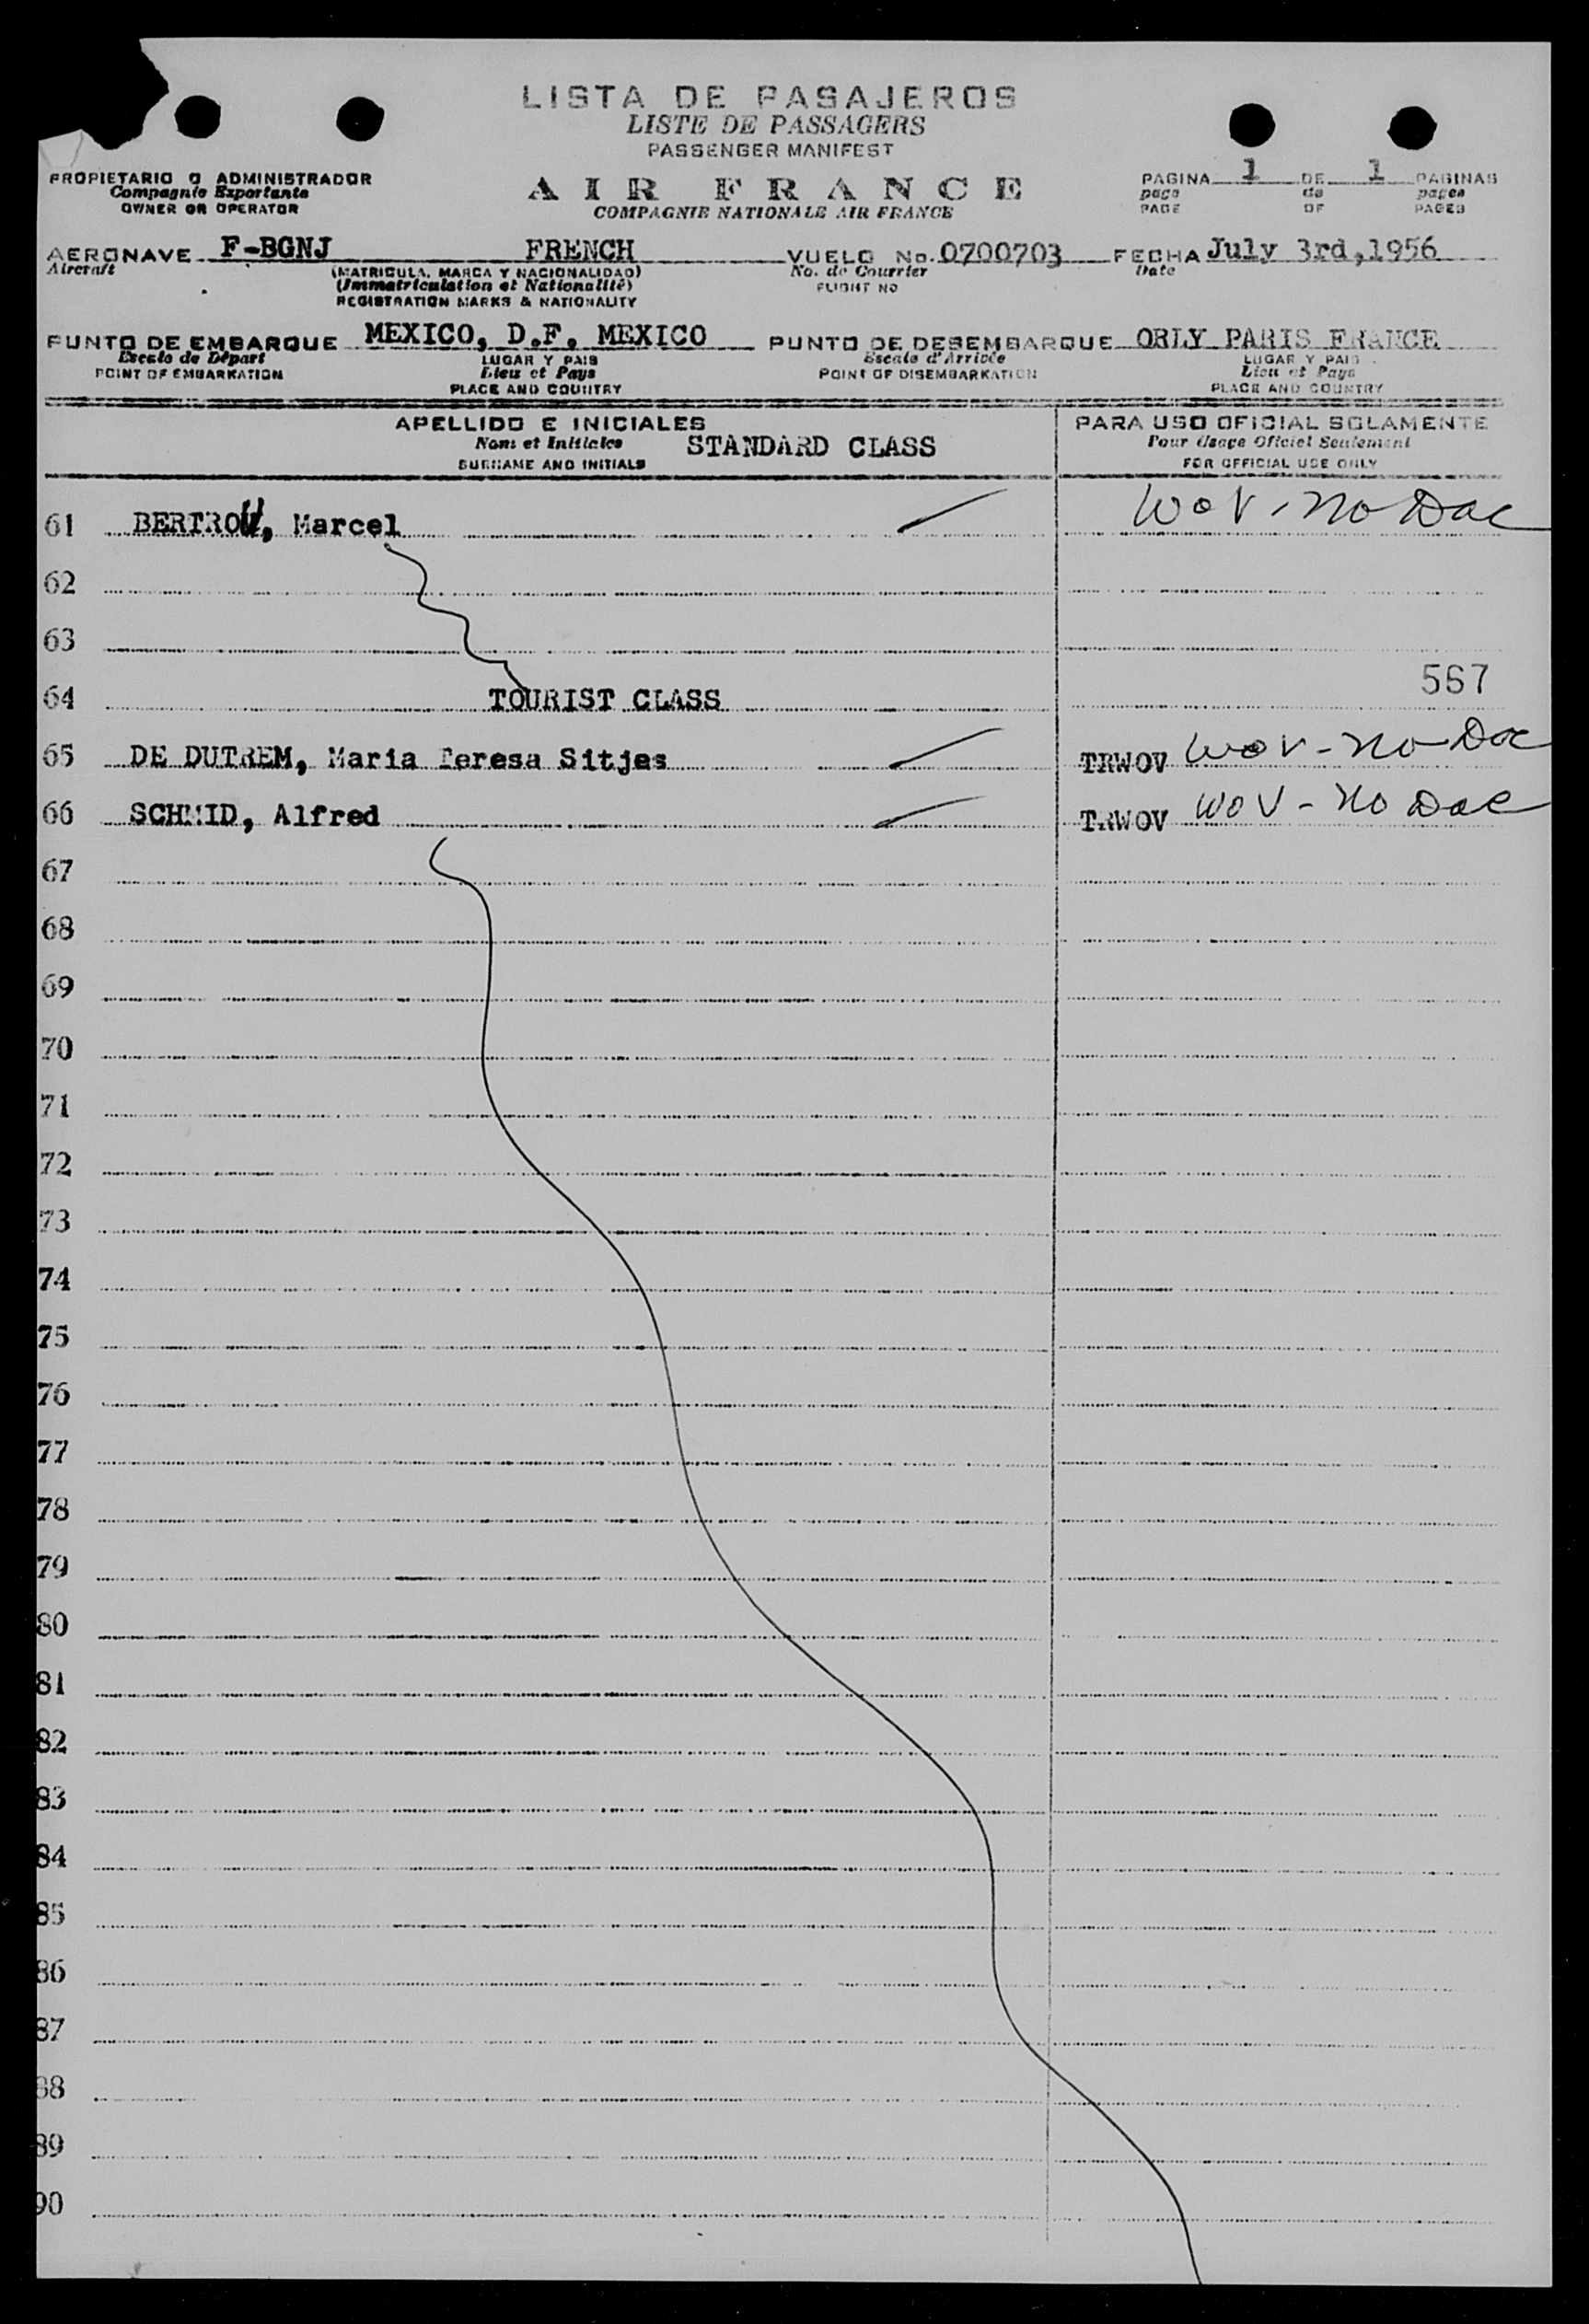 LISTA DE PASAJEROS
LISTE DE PASSAGERS
PASSENGER MANIFEST
PROPIETARIO O ADMINISTRADOR
Compagnie Exportante
OWNER OR OPERATOR
AIR FRANCE
COMPAGNIE NATIONALE AIR FRANCE
PAGINA 1 DE 1 PAGINAS
page de pages
PAGE OF PAGES
AERONAVE F-BGNJ FRENCH VUELO No. 0700703 FECHA July 3rd, 1956
Aircraft (MATRICULA, MARCA Y NACIONALIDAD) No. de Courrier Date
(Immatriculation et Nationalité) FLIGHT NO
REGISTRATION MARKS & NATIONALITY
PUNTO DE EMBARQUE MEXICO, D.F. MEXICO PUNTO DE DESEMBARQUE ORLY PARIS FRANCE
Escale de Départ LUGAR Y PAIS Escale d'Arrivée LUGAR Y PAIS
POINT OF EMBARKATION Lieu et Pays POINT OF DISEMBARKATION Lieu et Pays
PLACE AND COUNTRY PLACE AND COUNTRY
APELLIDO E INICIALES PARA USO OFICIAL SOLAMENTE
Nom et Initiales STANDARD CLASS Pour Usage Oficiel Seulement
SURNAME AND INITIALS FOR OFFICIAL USE ONLY
61 BERTROU, Marcel WOV - No Doc
62
63
567
64 TOURIST CLASS
65 DE DUTREM, Maria Teresa Sitjes TRWOV WOV - No Doc
66 SCHMID, Alfred TRWOV WOV - No Doc
67
68
69
70
71
72
73
74
75
76
77
78
79
80
81
82
83
84
85
86
87
88
89
90